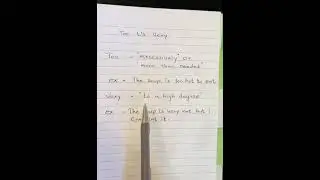 Too Vs Very
Too = "excessively" or
more than needed"
ex = The soup is too hot to eat
very = "to a high degree"
ex = The soup is very hot but I
can eat it.